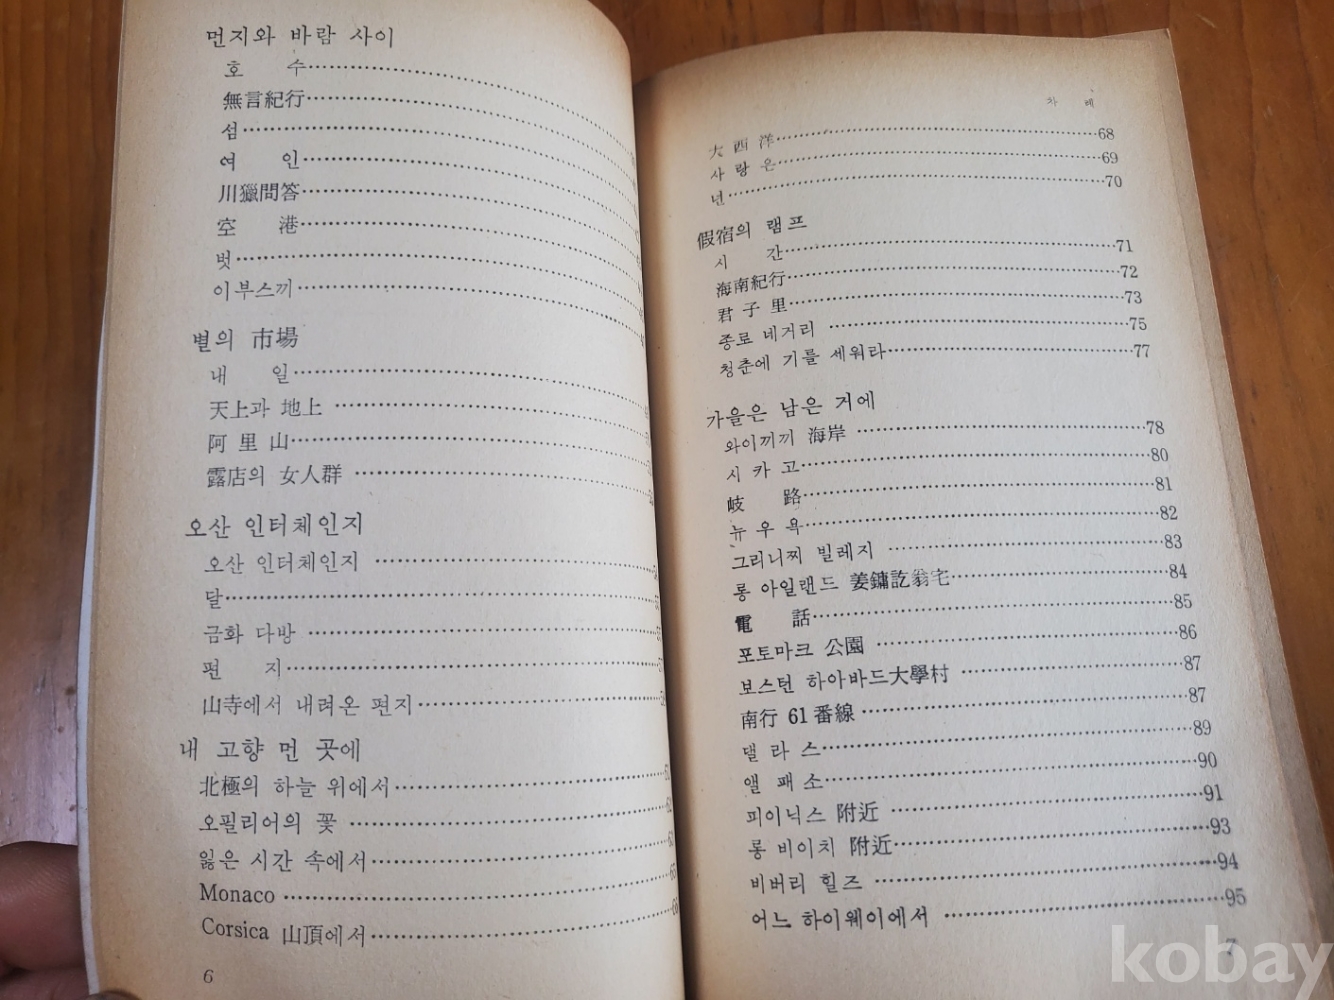 먼지와 바람 사이
호 수
無言紀行
섬
여 인
川獵問答
空 港
벗
이부스끼
별의 市場
내 일
天上과 地上
阿里山
露店의 女人群
오산 인터체인지
오산 인터체인지
달
금화 다방
편 지
山寺에서 내려온 편지
내 고향 먼 곳에
北極의 하늘 위에서
오필리어의 꽃
잃은 시간 속에서
Monaco
Corsica 山頂에서
6
차 례
大西洋 68
사랑은 69
년 70
假宿의 램프
시 간 71
海南紀行 72
君子里 73
종로 네거리 75
청춘에 기를 세워라 77
가을은 남은 거에
와이끼끼 海岸 78
시카고 80
岐 路 81
뉴우욕 82
그리니찌 빌레지 83
롱 아일랜드 姜鏞訖翁宅 84
電 話 85
포토마크 公園 86
보스턴 하아바드大學村 87
南行 61番線 87
댈라스 89
앨패소 90
피이닉스 附近 91
롱 비이치 附近 93
비버리 힐즈 94
어느 하이웨이에서 95
7
kobay